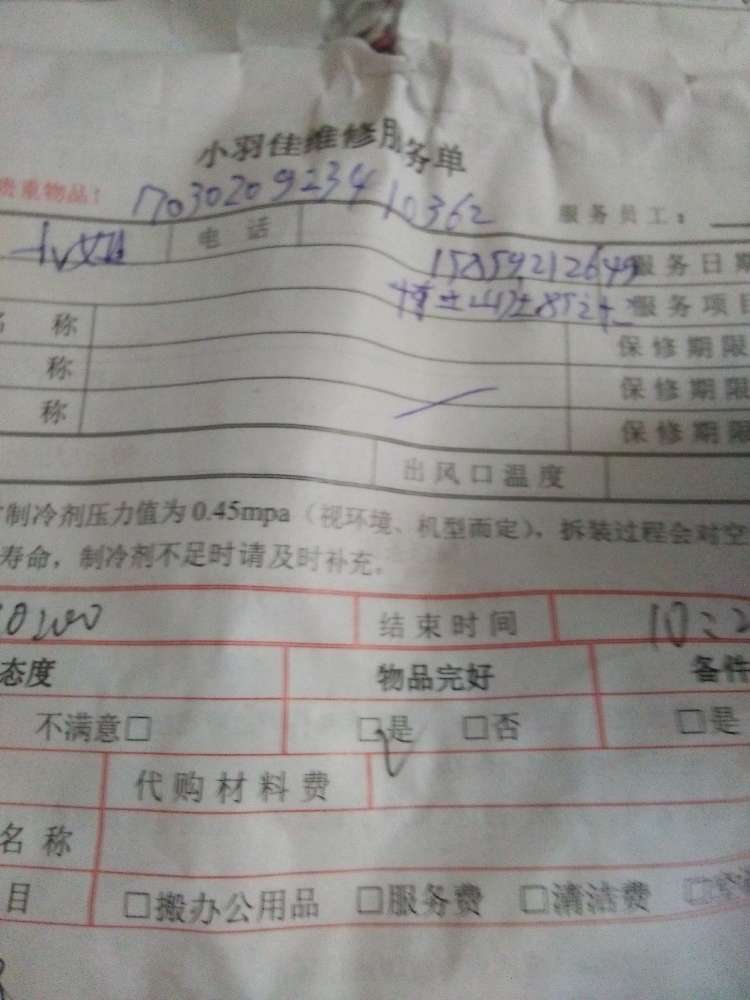 小羽佳维修服务单
贵重物品！ 17030209234 10362 服务员工：
电话 服务日期
服务项目
名称 保修期限
称 保修期限
称 保修期限
出风口温度
制冷剂压力值为0.45mpa（视环境、机型而定），拆装过程会对空
寿命，制冷剂不足时请及时补充。
结束时间
态度 物品完好 备件
不满意□ □是 □否 □是
代购材料费
名称
目 □搬办公用品 □服务费 □清洁费